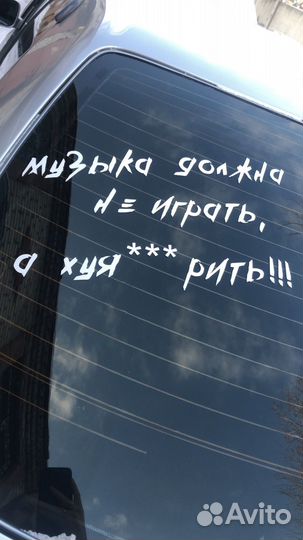 музыка должна
не играть,
а хуя***рить!!!
Avito